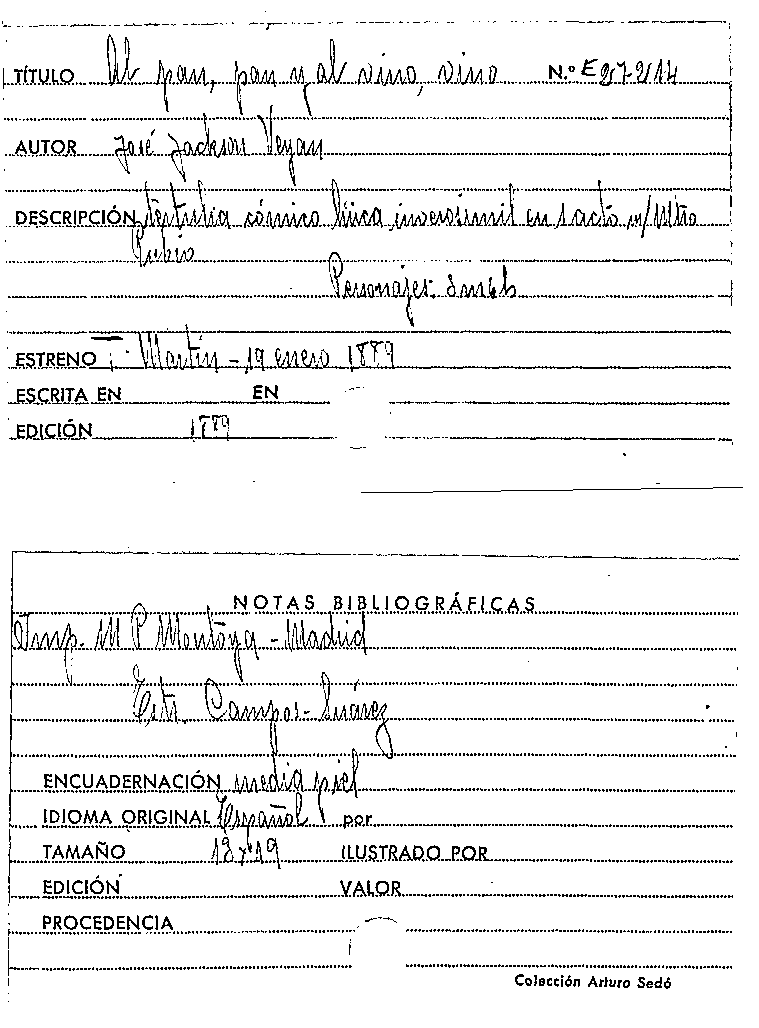 TÍTULO Al pan, pan y al vino, vino N.º E 27-214
AUTOR José Jackson Veyan
DESCRIPCIÓN tertulia cómico lírica, inverosimil en 1 acto m/ Mtro
Rubio
Personajes:
ESTRENO T. Martín - 19 enero 1889
ESCRITA EN EN
EDICIÓN 1889
NOTAS BIBLIOGRÁFICAS
Imp. M P Montoya - Madrid
Estr. Campos-Suárez
ENCUADERNACIÓN media piel
IDIOMA ORIGINAL Español por
TAMAÑO 13x19 ILUSTRADO POR
EDICIÓN VALOR
PROCEDENCIA
Colección Arturo Sedó